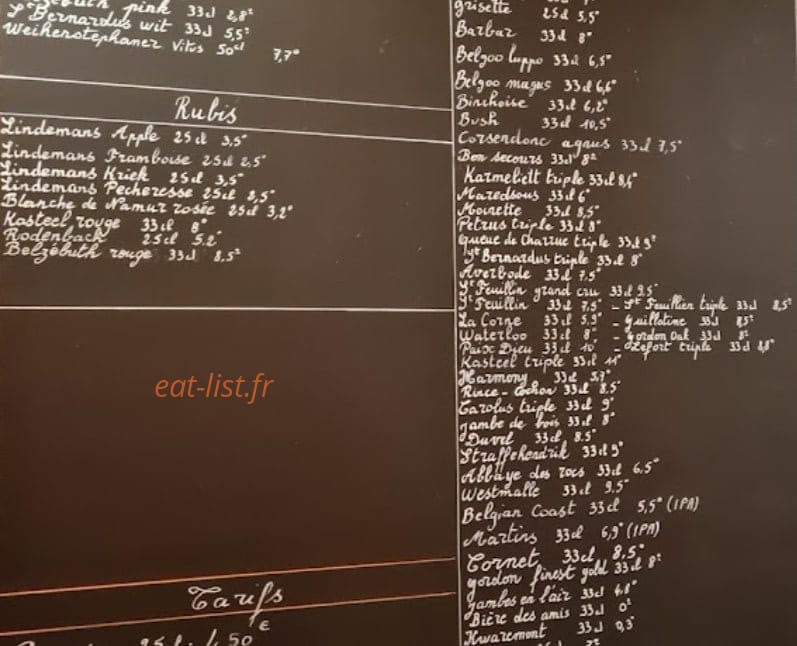 pink 33cl 2,8°
St Bernardus wit 33cl 5,5°
Weihenstephaner Vitus 50cl 7,7°
Rubis
Lindemans Apple 25cl 3,5°
Lindemans Framboise 25cl 2,5°
Lindemans Kriek 25cl 3,5°
Lindemans Pecheresse 25cl 2,5°
Blanche de Namur rosée 25cl 3,2°
Kasteel rouge 33cl 8°
Rodenback 25cl 5.2°
Belzébuth rouge 33cl 8,5°
eat-list.fr
Tarifs
25cl 4,50€
Grisette 25cl 5,5°
Barbar 33cl 8°
Belgoo luppo 33cl 6,5°
Belgoo magus 33cl 6,6°
Binchoise 33cl 6,2°
Bush 33cl 10,5°
Corsendonc agnus 33cl 7,5°
Bon secours 33cl 8°
Karmeliett triple 33cl 8,4°
Maredsous 33cl 6°
Moinette 33cl 8,5°
Petrus triple 33cl 8°
Queue de Charrue triple 33cl 9°
St Bernardus triple 33cl 8°
Averbode 33cl 7.5°
St Feuillin grand cru 33cl 9.5°
St Feuillin 33cl 7,5° - St Feuillien triple 33cl 8,5°
La Corne 33cl 5.9° - Guillotine 33cl 8,5°
Waterloo 33cl 8° - Gordon Oak 33cl 8°
Paix Dieu 33cl 10° - Lefort triple 33cl 8,8°
Kasteel triple 33cl 11°
Harmony 33cl 5,7°
Rince-Cochon 33cl 8.5°
Carolus triple 33cl 9°
Jambe de bois 33cl 8°
Duvel 33cl 8.5°
Straffehendrik 33cl 9°
Abbaye des rocs 33cl 6.5°
Westmalle 33cl 9.5°
Belgian Coast 33cl 5,5° (IPA)
Martins 33cl 6,9° (IPA)
Cornet 33cl 8.5°
Gordon finest gold 33cl 8°
Jambes en l'air 33cl 6,8°
Bière des amis 33cl 0°
Kwaremont 33cl 0,3°